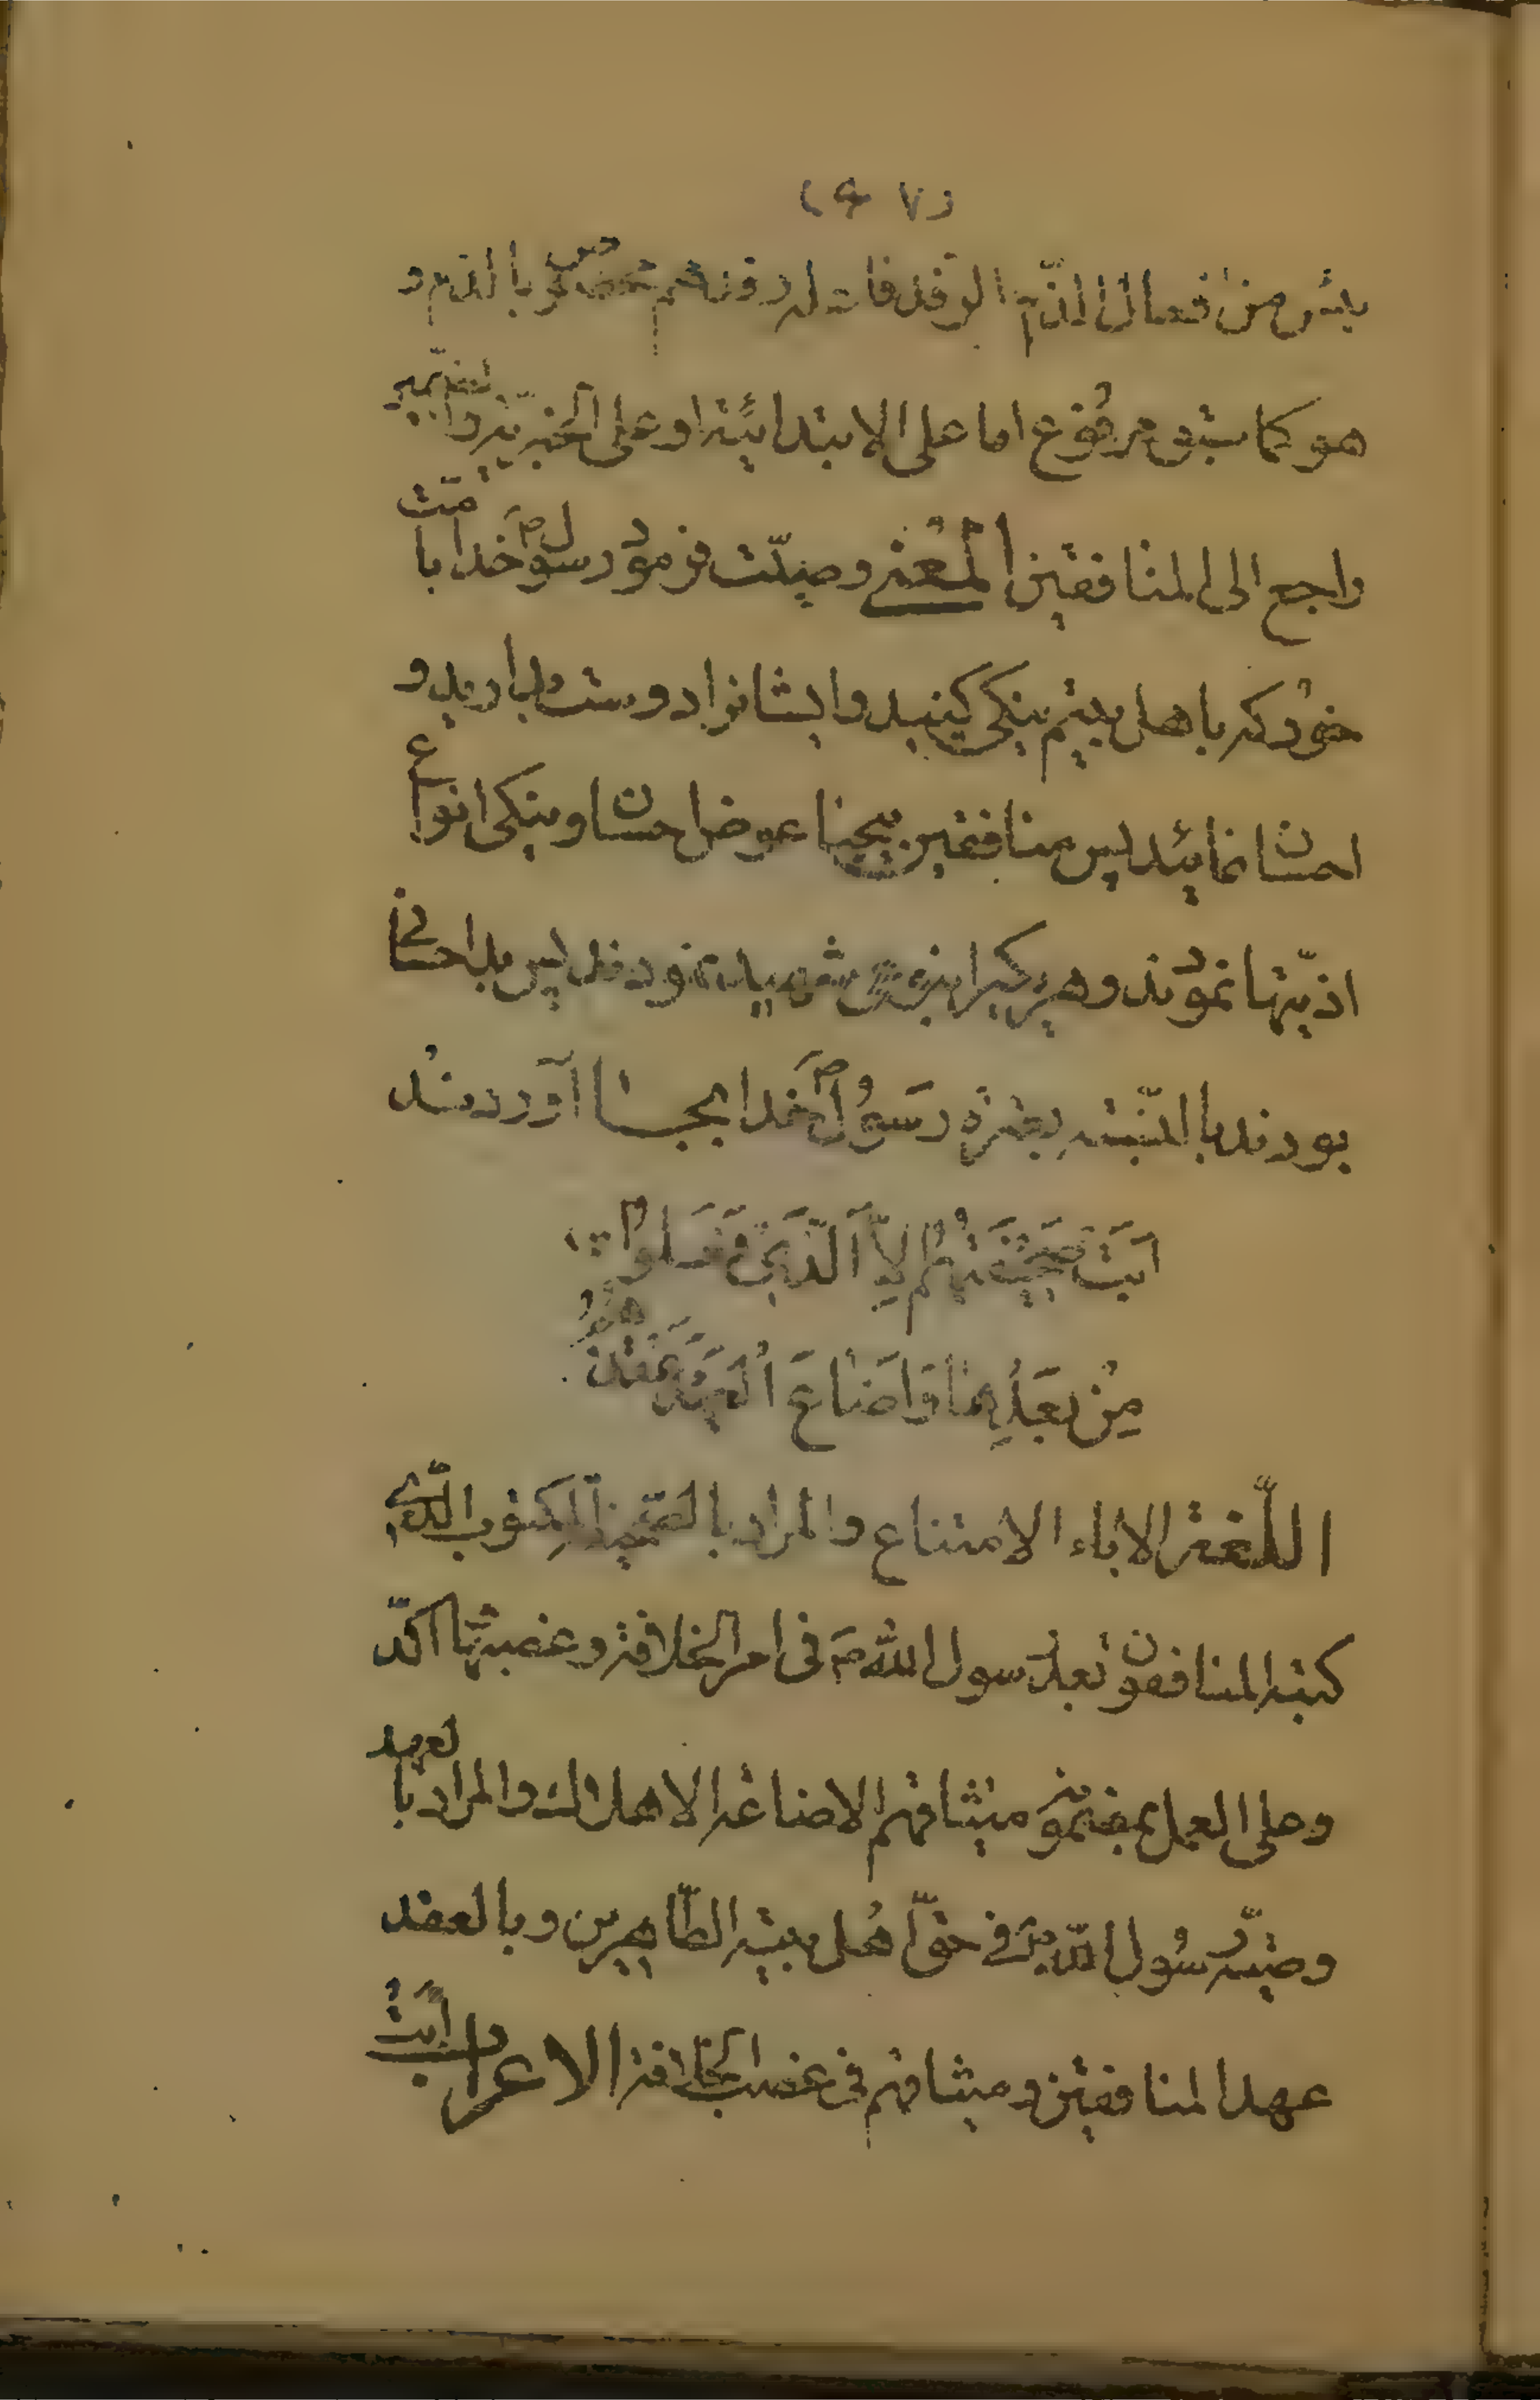 (٩٧)
بئس من افعال الذم الرفد فاعله رفدهم مخصوص بالذم و
هو كما سبق مرفوع اما على الابتدائية او على الخبرية والضمير
راجع الى المنافقين المعنى وصيّت فرمود رسول ص خدا با امّت
خود كه با اهل بيتم نيكى كنيد و ايشانرا دوست بداريد و
احسان نمائيد پس منافقين بيحيا عوض احسان و نيكى انواع
اذيّتها نمودند و هريكيرا بنوعى شهيد نمودند پس بد احسانى
بودند بالنّسبه بعترة رسول ص خدا بجا آوردند
ابت صحيفتهم الا الّذى فعلوا
من بعدها واضاع العهد عقدهم
اللّغة الاباء الامتناع والمراد بالصحيفة المكتوب الّذى
كتبه المنافقون بعد رسول اللّه ص فى امر الخلافة وغصبيتها اكّد
وعلى العمل بمضمون ميثاقهم الاضاعه الاهلاك والمراد بالعهد
وصيّة رسول اللّه ص فى حقّ اهل بيته الطّاهرين وبالعقد
عهد المنافقين وميثاقهم فى غصب الخلافة الاعراب ابت